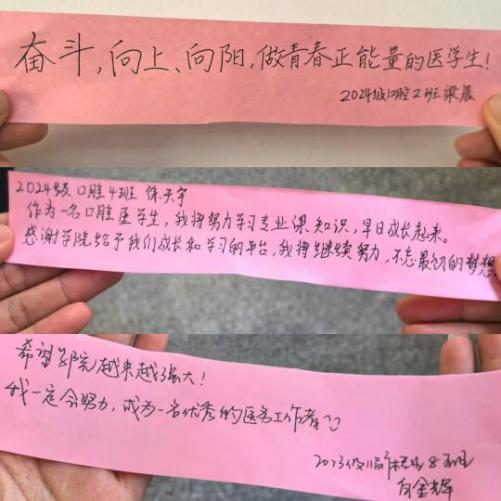 奋斗,向上、向阳,做青春正能量的医学生!
2024级口腔2班梁晨
2024级口腔4班 天宇
作为一名口腔医学生,我将努力学习专业课知识,早日成长起来。
感谢学院给予我们成长和学习的平台,我将继续努力,不忘最初的梦想
希望学院越来越强大!
我一定会努力,成为一名优秀的医务工作者
2023级临床 8班